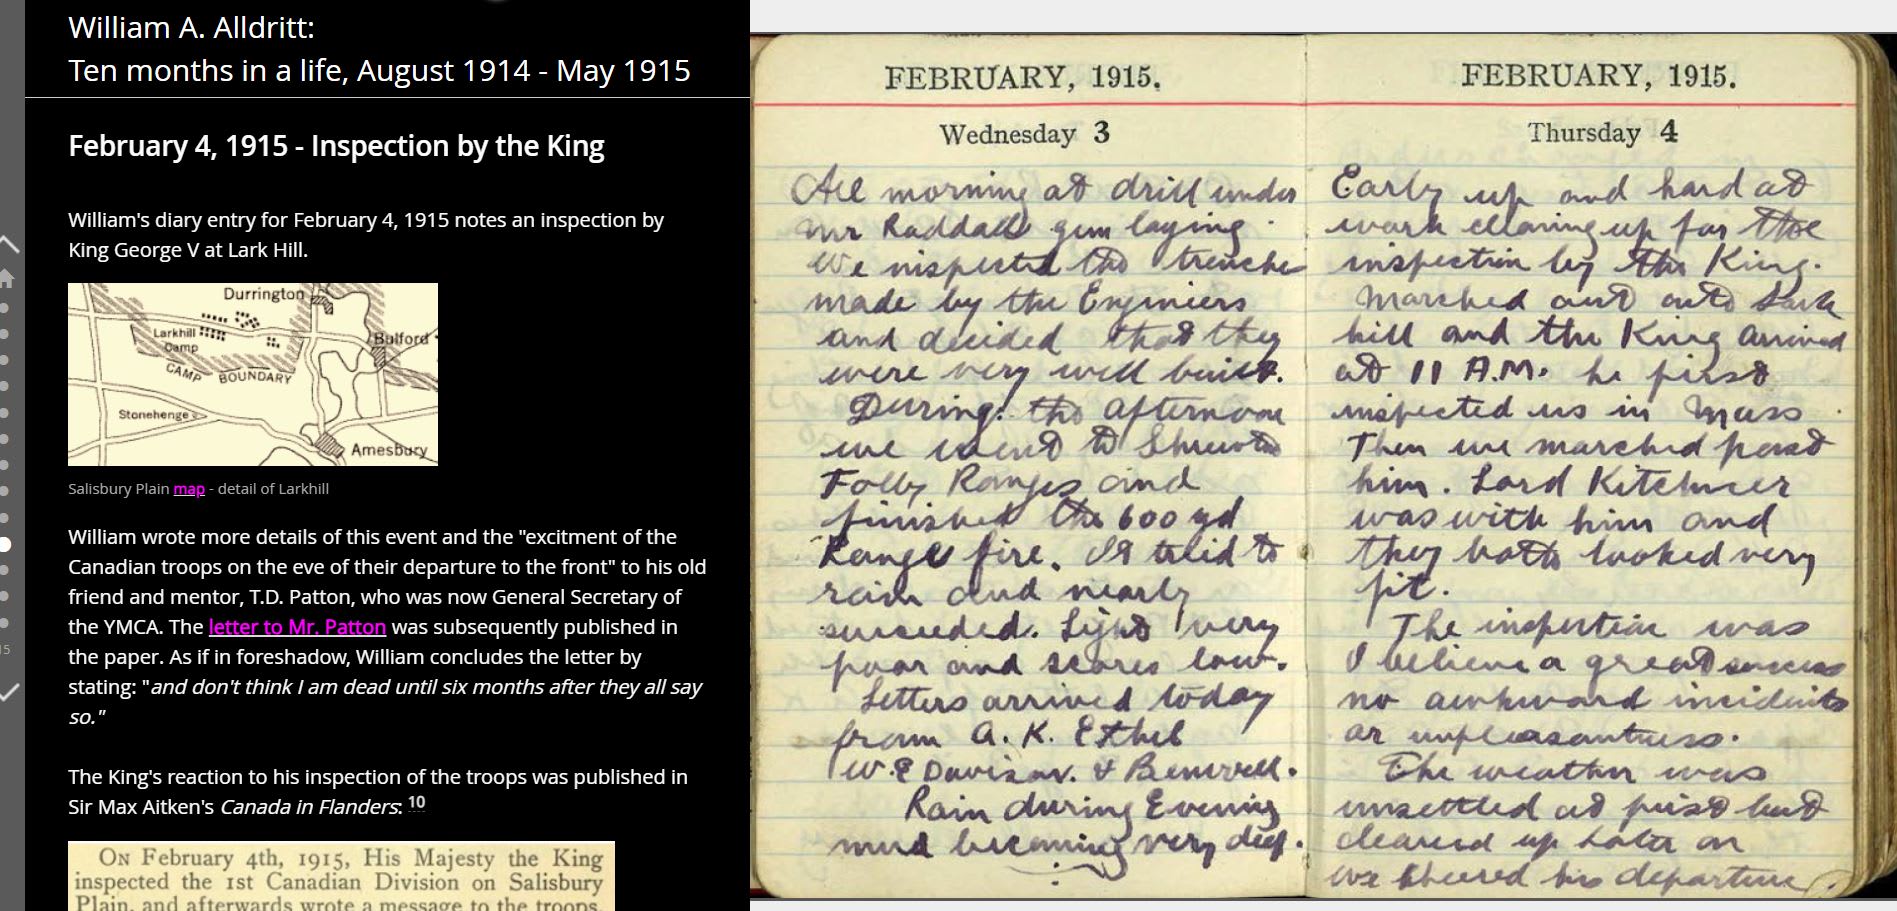 William A. Alldritt:
Ten months in a life, August 1914 - May 1915
February 4, 1915 - Inspection by the King
William's diary entry for February 4, 1915 notes an inspection by
King George V at Lark Hill.
Durrington
Larkhill
Camp
Bulford
CAMP BOUNDARY
Stonehenge
Amesbury
Salisbury Plain map - detail of Larkhill
William wrote more details of this event and the "excitment of the
Canadian troops on the eve of their departure to the front" to his old
friend and mentor, T.D. Patton, who was now General Secretary of
the YMCA. The letter to Mr. Patton was subsequently published in
the paper. As if in foreshadow, William concludes the letter by
stating: "and don't think I am dead until six months after they all say
so."
The King's reaction to his inspection of the troops was published in
Sir Max Aitken's Canada in Flanders: 10
ON February 4th, 1915, His Majesty the King
inspected the 1st Canadian Division on Salisbury
Plain, and afterwards wrote a message to the troops,
15
FEBRUARY, 1915.
Wednesday 3
All morning at drill under
Mr Raddall gun laying
We inspected the trenches
made by the Engineers
and decided that they
were very well built.
During the afternoon
we went to
Folly Ranges and
finished the 600 yd
Range fire. It tried to
rain and nearly
succeeded. Light very
poor and scores low.
Letters arrived today
from A. K. Ethel
W. E Davison. &
Rain during Evening
mud becoming very deep.
FEBRUARY, 1915.
Thursday 4
Early up and hard at
work cleaning up for the
inspection by the King.
Marched out onto Lark
hill and the King arrived
at 11 A.M. he first
inspected us in Mass
Then we marched past
him. Lord Kitchner
was with him and
they both looked very
fit.
The inspection was
I believe a great success
no awkward incidents
or unpleasantness.
The weather was
unsettled at first but
cleared up later on
we cheered his departure.